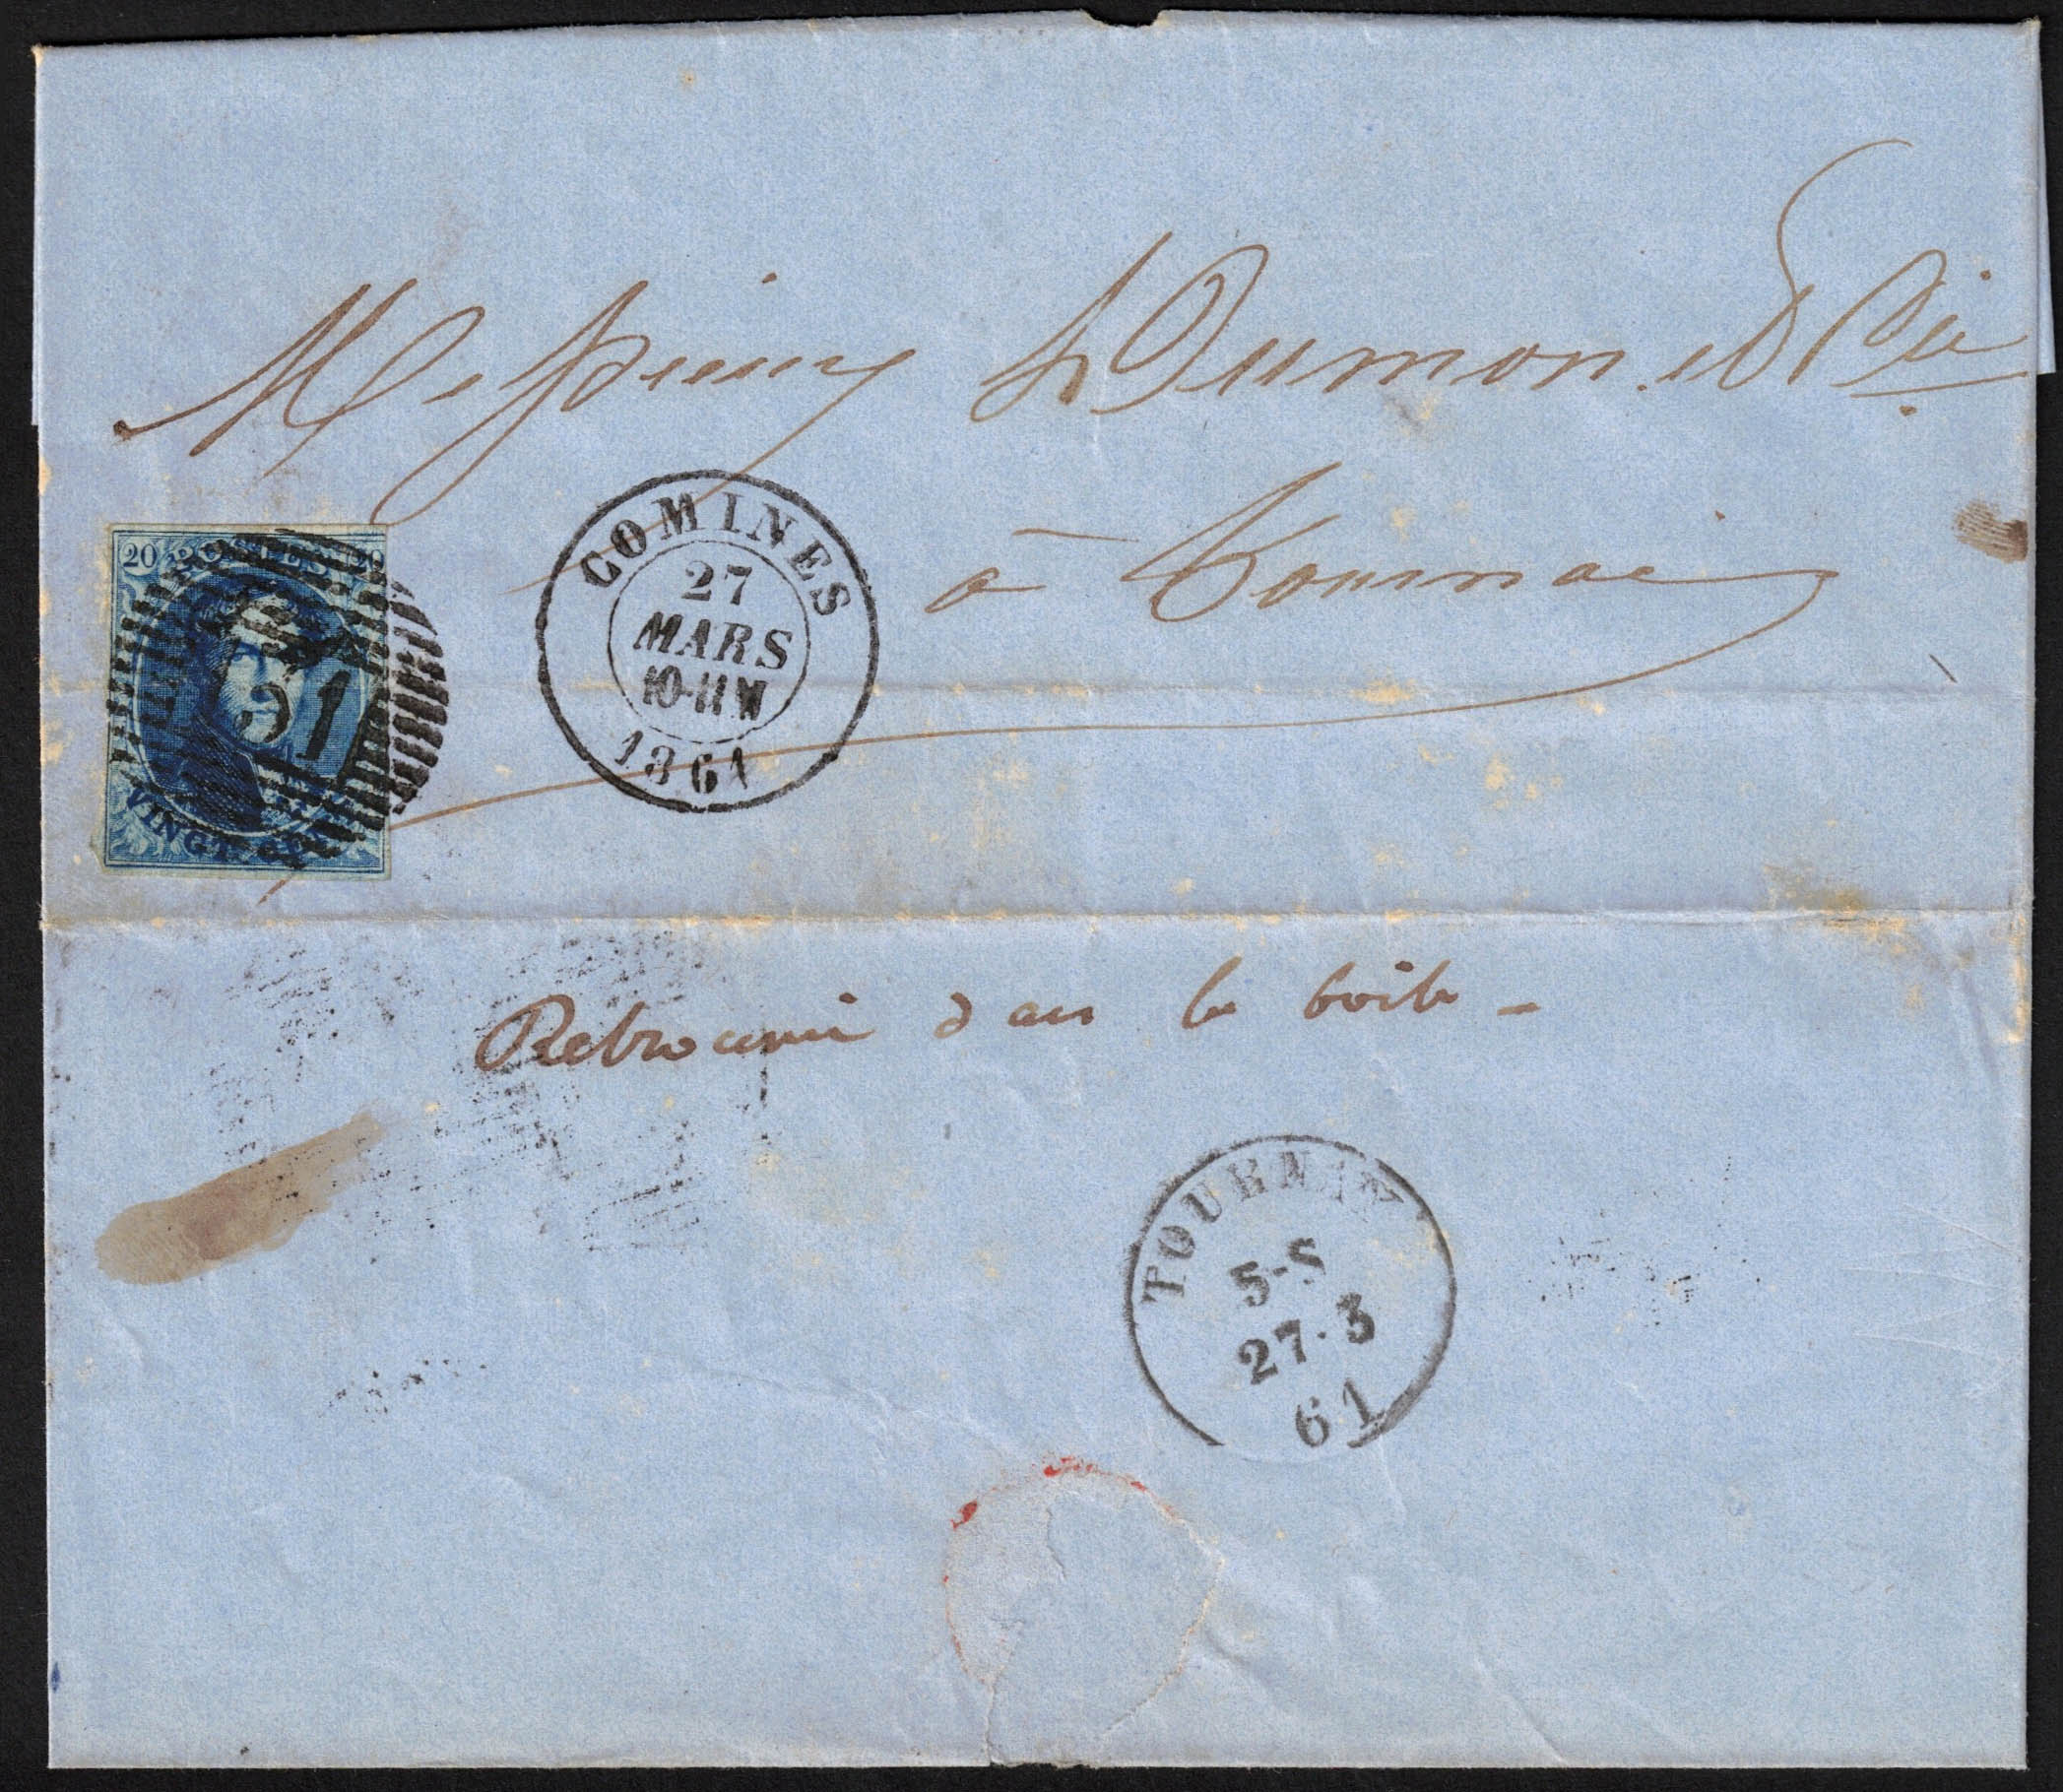 Messieurs Dumon et Cie
à Tournai
20 POSTES 20
51
VINGT
COMINES
27
MARS
10-11 M
1861
Retrouvé dans la boîte -
TOURNAY
5-S
27·3
61